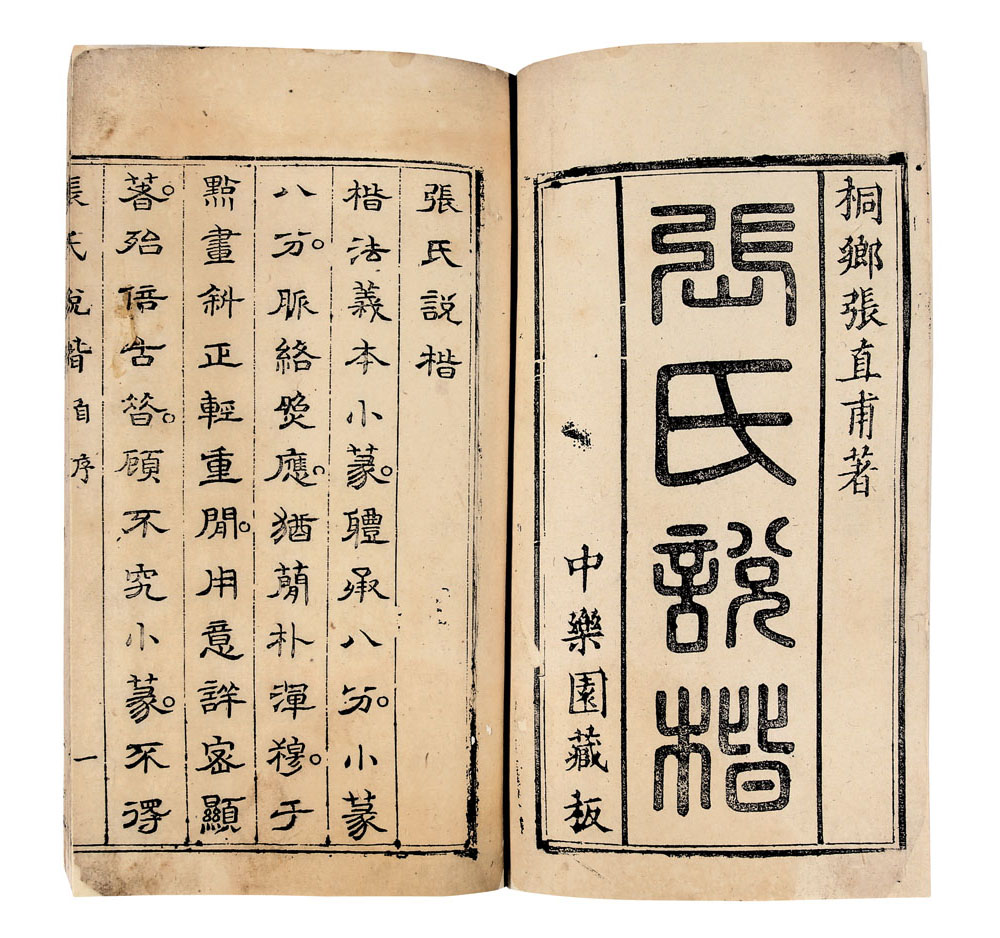 桐鄉張直甫著
張氏說楷
中樂園藏板
張氏說楷
楷法義本小篆。體承八分。小篆
八分。脈絡㷼應。猶蕳朴渾穆。于
點畫斜正輕重閒。用意詳密顯
著。殆倍古昝。顧不究小篆。不得
張氏說楷 自序 一